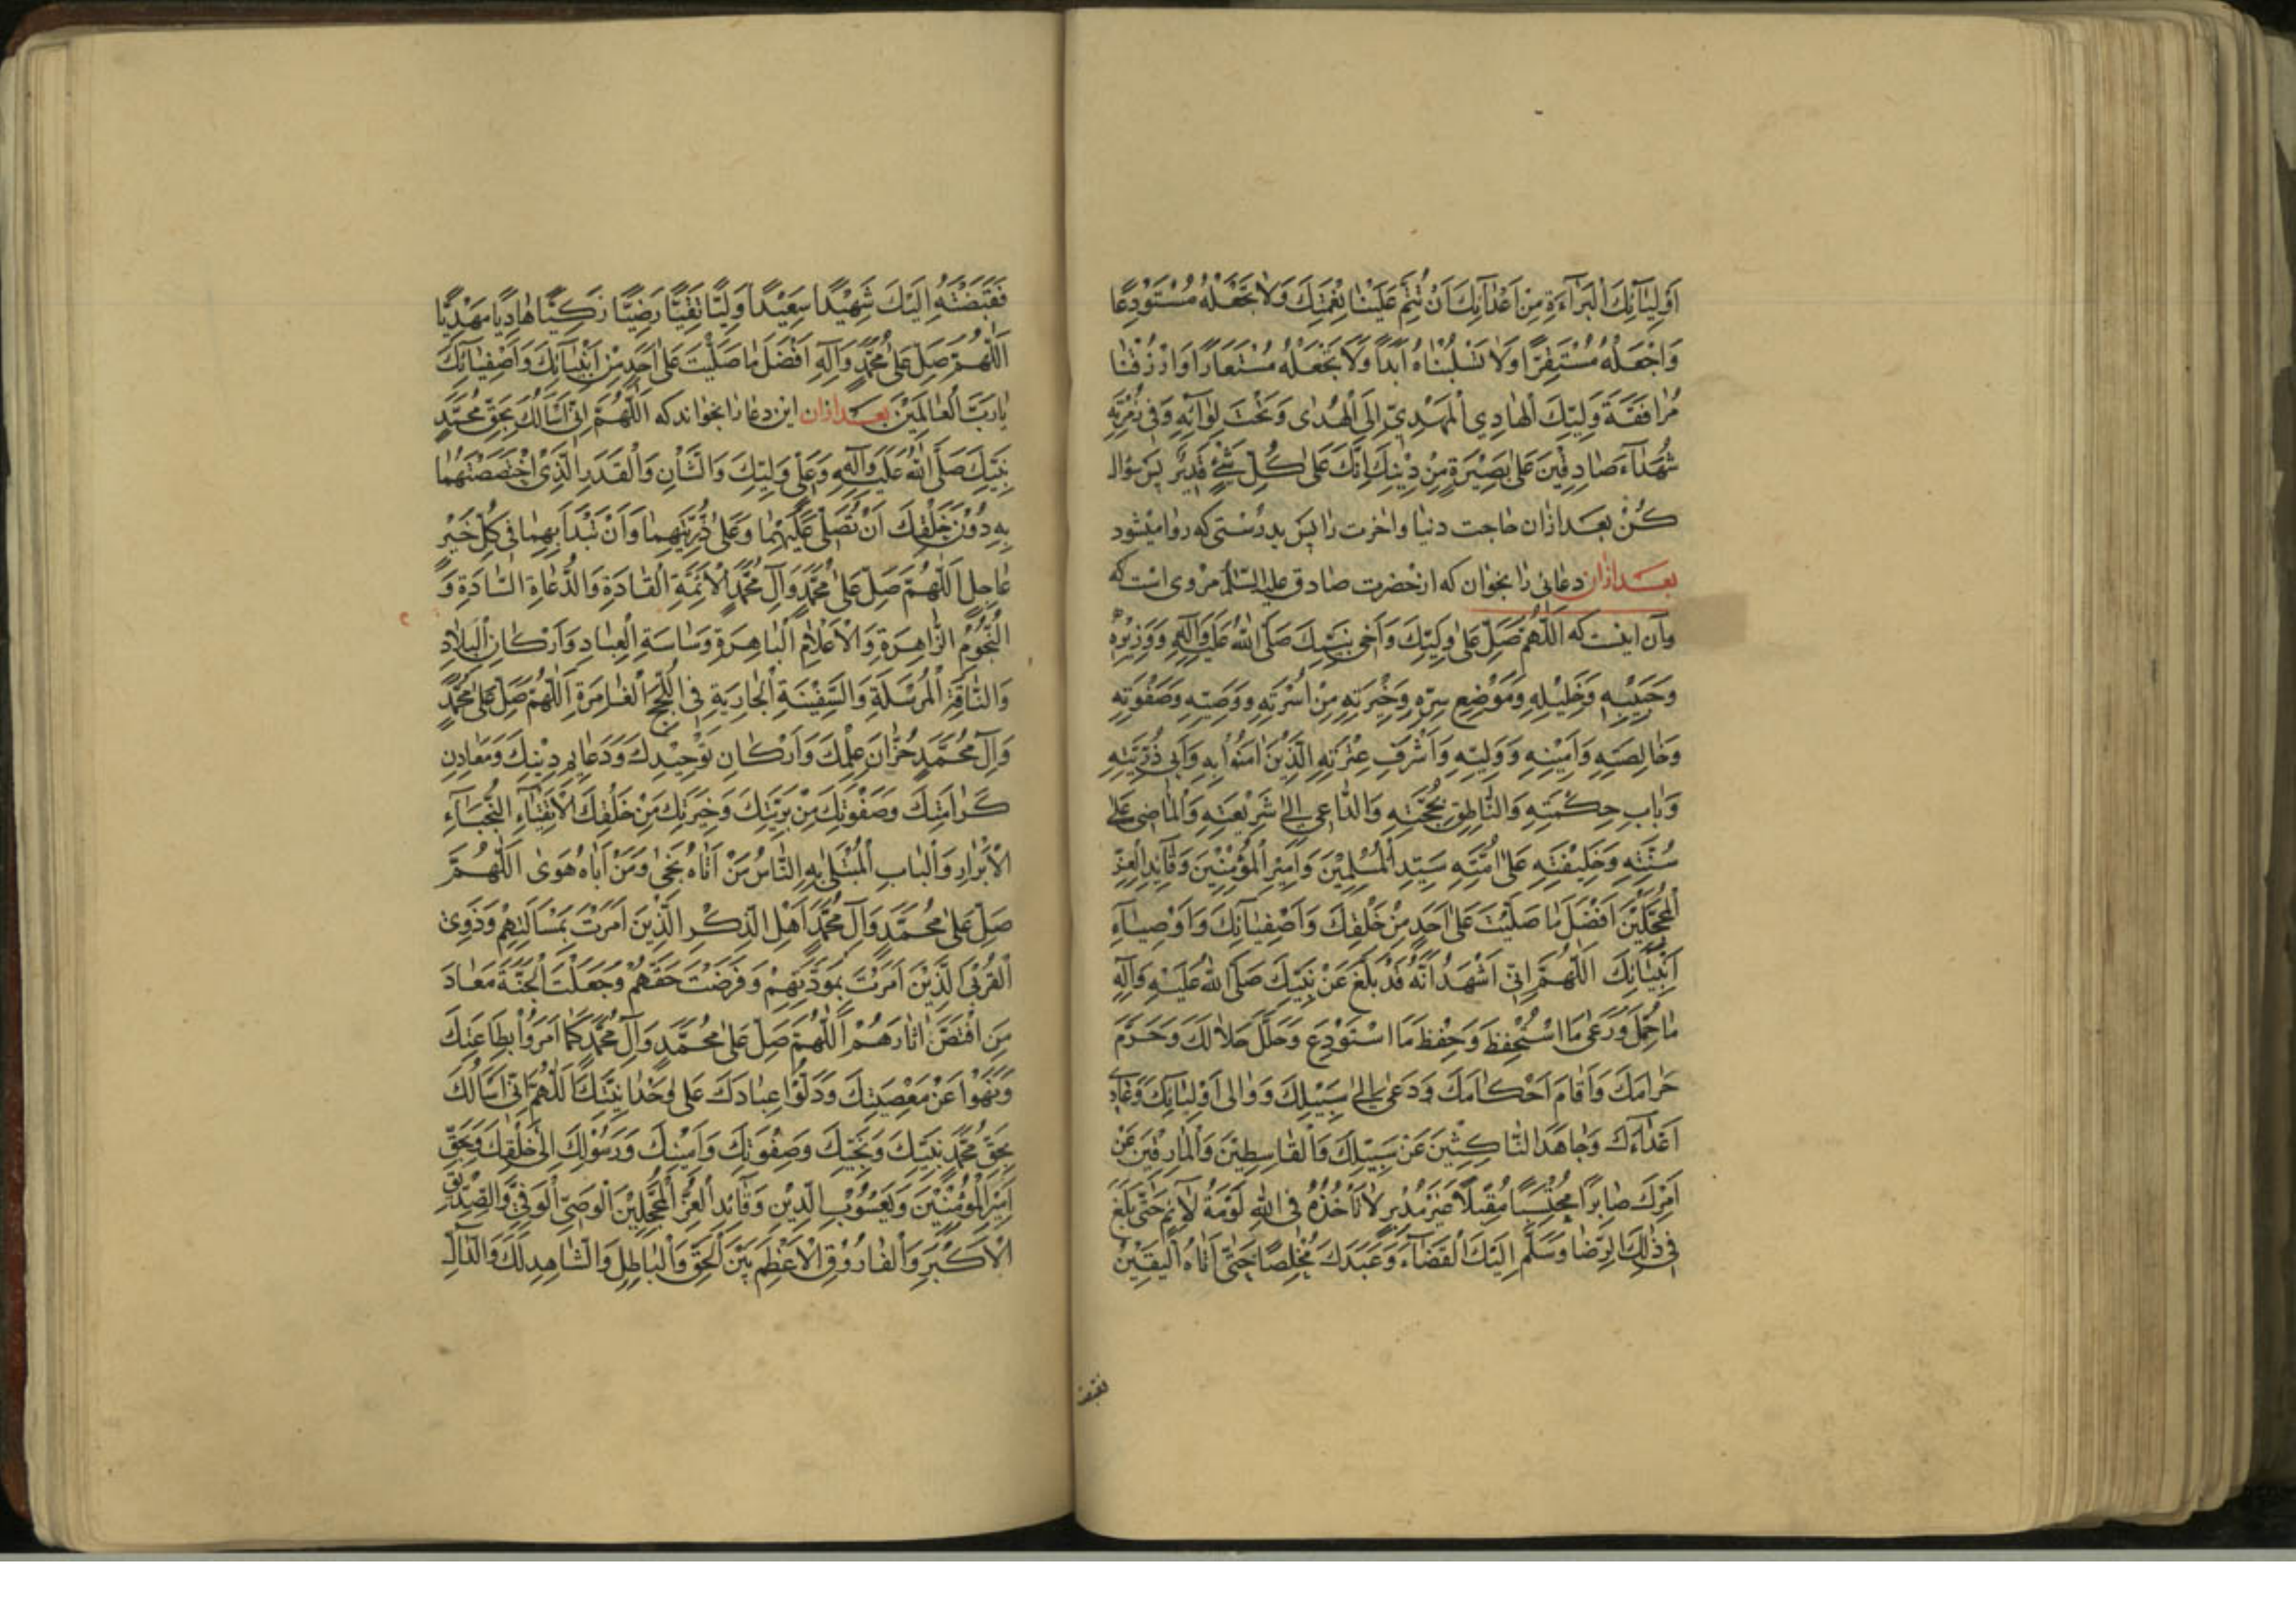 اَوْلِيٰٓائِكَ الْبَرٰٓاءَةِ مِنْ اَعْدٰٓائِكَ اَنْ تُتِمَّ عَلَيْنٰا نِعْمَتَكَ وَلاٰ تَجْعَلْهُ مُسْتَوْدِعًا
وَاجْعَلْهُ مُسْتَقِرًّا وَلاٰ تَسْلُبْنٰاهُ اَبَدًا وَلاٰ تَجْعَلْهُ مُسْتَعٰارًا وَارْزُقْنٰا
مُرٰافَقَةَ وَلِيِّكَ الْهٰادِي الْمَهْدِيِّ اِلَى الْهُدٰى وَتَحْتَ لِوٰآئِهِ وَفي زُمْرَتِهِ
شُهَدٰآءَ صٰادِقينَ عَلىٰ بَصيْرَةٍ مِنْ دِيْنِكَ اِنَّكَ عَلىٰ كُلِّ شَيْءٍ قَديرٌ پس سؤال
كُنْ بعد ازان حاجت دنيا واخرت را پس بدرستى كه روا ميشود
بعد ازان دعائى را بخوان كه ازحضرت صادق عليه السّلم مروى است كه
وآن اينست كه اَللّٰهُمَّ صَلِّ عَلىٰ وَلِيِّكَ وَاَخي نَبِيِّكَ صَلَّى اللهُ عَلَيْهِ وَآلِهِ وَوَزيرِهِ
وَحَبيْبِهِ وَخَليْلِهِ وَمَوْضِعِ سِرِّهِ وَخِيَرَتِهِ مِنْ اُسْرَتِهِ وَوَصِيِّهِ وَصَفْوَتِهِ
وَخٰالِصَتِهِ وَاَميْنِهِ وَوَلِيِّهِ وَاَشْرَفِ عِتْرَتِهِ الَّذيْنَ اٰمَنُوْا بِهِ وَاَبي ذُرِّيَّتِهِ
وَبٰابِ حِكْمَتِهِ وَالنّٰاطِقِ بِحُجَّتِهِ وَالدّٰاعي اِلىٰ شَريْعَتِهِ وَالْمٰاضي عَلىٰ
سُنَّتِهِ وَخَليْفَتِهِ عَلىٰ اُمَّتِهِ سَيِّدِ الْمُسْلِميْنَ وَاَميْرِ الْمُؤْمِنيْنَ وَقٰآئِدِ الْغُرِّ
الْمُحَجَّليْنَ اَفْضَلَ مٰا صَلَّيْتَ عَلىٰ اَحَدٍ مِنْ خَلْقِكَ وَاَصْفِيٰآئِكَ وَاَوْصِيٰآءِ
اَنْبِيٰآئِكَ اَللّٰهُمَّ اِنّي اَشْهَدُ اَنَّهُ قَدْ بَلَّغَ عَنْ نَبِيِّكَ صَلَّى اللهُ عَلَيْهِ وَآلِهِ
مٰا حُمِّلَ وَرَعىٰ مَا اسْتُحْفِظَ وَحَفِظَ مَا اسْتَوْدِعَ وَحَلَّلَ حَلاٰلَكَ وَحَرَّمَ
حَرٰامَكَ وَاَقٰامَ اَحْكٰامَكَ وَدَعىٰ اِلىٰ سَبيْلِكَ وَوٰالى اَوْلِيٰآئَكَ وَعٰادىٰ
اَعْدٰآءَكَ وَجٰاهَدَ النّٰاكِثيْنَ عَنْ سَبيْلِكَ وَالْقٰاسِطيْنَ وَالْمٰارِقيْنَ عَنْ
اَمْرِكَ صٰابِرًا مُحْتَسِبًا مُقْبِلاً غَيْرَ مُدْبِرٍ لاٰ تَأْخُذُهُ فِي اللهِ لَوْمَةُ لاٰئِمٍ حَتّىٰ بَلَغَ
في ذٰلِكَ الرِّضٰا وَسَلَّمَ اِلَيْكَ الْقَضٰآءَ وَعَبَدَكَ مُخْلِصًا حَتّىٰ اَتٰاهُ الْيَقيْنُ
فقبضته
فَقَبَضْتَهُ اِلَيْكَ شَهيْدًا سَعيْدًا وَلِيًّا تَقِيًّا رَضِيًّا زَكِيًّا هٰادِيًا مَهْدِيًّا
اَللّٰهُمَّ صَلِّ عَلىٰ مُحَمَّدٍ وَآلِهِ اَفْضَلَ مٰا صَلَّيْتَ عَلىٰ اَحَدٍ مِنْ اَنْبِيٰآئِكَ وَاَصْفِيٰآئِكَ
يٰا رَبَّ الْعٰالَميْنَ بعد ازان اين دعا را بخواند كه اَللّٰهُمَّ اِنّي اَسْاَلُكَ بِحَقِّ مُحَمَّدٍ
نَبِيِّكَ صَلَّى اللهُ عَلَيْهِ وَآلِهِ وَعَلىٰ وَلِيِّكَ وَالشَّأْنِ وَالْقَدَرِ الَّذيْ اخْتَصَصْتَهُمٰا
بِهِ دُوْنَ خَلْقِكَ اَنْ تُصَلّي عَلَيْهِمٰا وَعَلىٰ ذُرِّيَّتِهِمٰا وَاَنْ تَبْدَاَ بِهِمٰا في كُلِّ خَيْرٍ
عٰاجِلٍ اَللّٰهُمَّ صَلِّ عَلىٰ مُحَمَّدٍ وَآلِ مُحَمَّدٍ الْاَئِمَّةِ الْقٰادَةِ وَالدُّعٰاةِ السّٰادَةِ وَ
النُّجُوْمِ الزّٰاهِرَةِ وَالْاَعْلاٰمِ الْبٰاهِرَةِ وَسٰاسَةِ الْعِبٰادِ وَاَرْكٰانِ الْبِلاٰدِ
وَالنّٰاقَةِ الْمُرْسَلَةِ وَالسَّفيْنَةِ الْجٰارِيَةِ فِي اللُّجَجِ الْغٰامِرَةِ اَللّٰهُمَّ صَلِّ عَلىٰ مُحَمَّدٍ
وَآلِ مُحَمَّدٍ خُزّٰانِ عِلْمِكَ وَاَرْكٰانِ تَوْحيْدِكَ وَدَعٰائِمِ ديْنِكَ وَمَعٰادِنِ
كَرٰامَتِكَ وَصَفْوَتِكَ مِنْ بَرِيَّتِكَ وَخِيَرَتِكَ مِنْ خَلْقِكَ الْاَتْقِيٰٓاءِ النُّجَبٰآءِ
الْاَبْرٰارِ وَالْبٰابِ الْمُبْتَلىٰ بِهِ النّٰاسُ مَنْ اَتٰاهُ نَجىٰ وَمَنْ اَبٰاهُ هَوىٰ اَللّٰهُمَّ
صَلِّ عَلىٰ مُحَمَّدٍ وَآلِ مُحَمَّدٍ اَهْلِ الذِّكْرِ الَّذيْنَ اَمَرْتَ بِمَسْأَلَتِهِمْ وَذَوِى
الْقُرْبَى الَّذيْنَ اَمَرْتَ بِمَوَدَّتِهِمْ وَفَرَضْتَ حَقَّهُمْ وَجَعَلْتَ الْجَنَّةَ مَعٰادَ
مَنِ اقْتَصَّ اٰثٰارَهُمْ اَللّٰهُمَّ صَلِّ عَلىٰ مُحَمَّدٍ وَآلِ مُحَمَّدٍ كَمٰا اَمَرُوْا بِطٰاعَتِكَ
وَنَهَوْا عَنْ مَعْصِيَتِكَ وَدَلُّوْا عِبٰادَكَ عَلىٰ وَحْدٰانِيَّتِكَ اَللّٰهُمَّ اِنّي اَسْاَلُكَ
بِحَقِّ مُحَمَّدٍ نَبِيِّكَ وَنَجِيِّكَ وَصَفْوَتِكَ وَاَميْنِكَ وَرَسُوْلِكَ اِلىٰ خَلْقِكَ وَبِحَقِّ
اَميْرِ الْمُؤْمِنيْنَ وَيَعْسُوْبِ الدّيْنِ وَقٰآئِدِ الْغُرِّ الْمُحَجَّليْنَ الْوَصِيِّ الْوَفِيِّ وَالصِّدّيْقِ
الْاَكْبَرِ وَالْفٰارُوْقِ الْاَعْظَمِ بَيْنَ الْحَقِّ وَالْبٰاطِلِ وَالشّٰاهِدِ لَكَ وَالدّٰالِّ